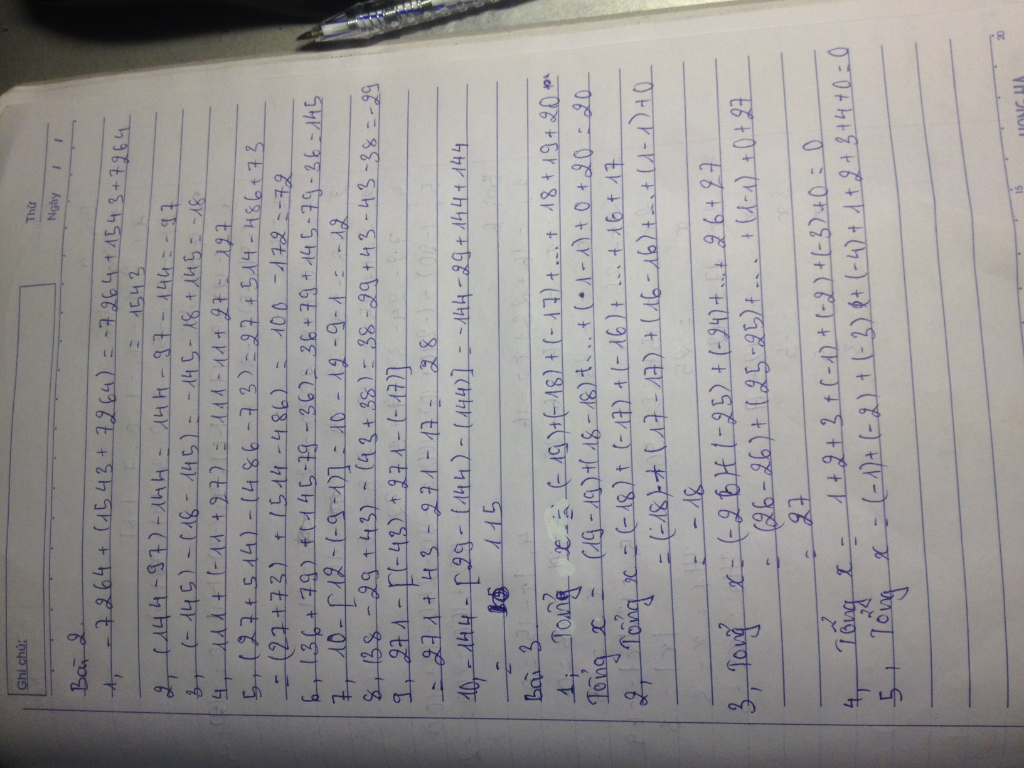 Ghi chú:
Thứ
Ngày / /
Bài 2
1, -7264 + (1543 + 7264) = -7264 + 1543 + 7264
= 1543
2, (144 - 97) - 144 = 144 - 97 - 144 = -97
3, (-145) - (18 - 145) = -145 - 18 + 145 = -18
4, 111 + (-11 + 27) = 111 - 11 + 27 = 127
5, (27 + 514) - (486 - 73) = 27 + 514 - 486 + 73
= (27 + 73) + (514 - 486) = 100 - 172 = -72
6, (36 + 79) + (145 - 79 - 36) = 36 + 79 + 145 - 79 - 36 = 145
7, 10 - [12 - (-9 - 1)] = 10 - 12 - 9 - 1 = -12
8, (38 - 29 + 43) - (43 + 38) = 38 - 29 + 43 - 43 - 38 = -29
9, 271 - [(-43) + 271 - (-17)]
= 271 + 43 - 271 - 17 = 28
10, -144 - [29 - (144) - (144)] = -144 - 29 + 144 + 144
= 115
Bài 3
1, Tổng x = (-19) + (-18) + (-17) + ... + 18 + 19 + 20
Tổng x = (19 - 19) + (18 - 18) + ... + (1 - 1) + 0 + 20 = 20
2, Tổng x = (-18) + (-17) + (-16) + ... + 16 + 17
= (-18) + (17 - 17) + (16 - 16) + ... + (1 - 1) + 0
= -18
3, Tổng x = (-26) + (-25) + (-24) + ... + 26 + 27
= (26 - 26) + (25 - 25) + .... + (1 - 1) + 0 + 27
= 27
4, Tổng x = 1 + 2 + 3 + (-1) + (-2) + (-3) + 0 = 0
5, Tổng x = (-1) + (-2) + (-3) + (-4) + 1 + 2 + 3 + 4 + 0 = 0
15
20
HONG HA